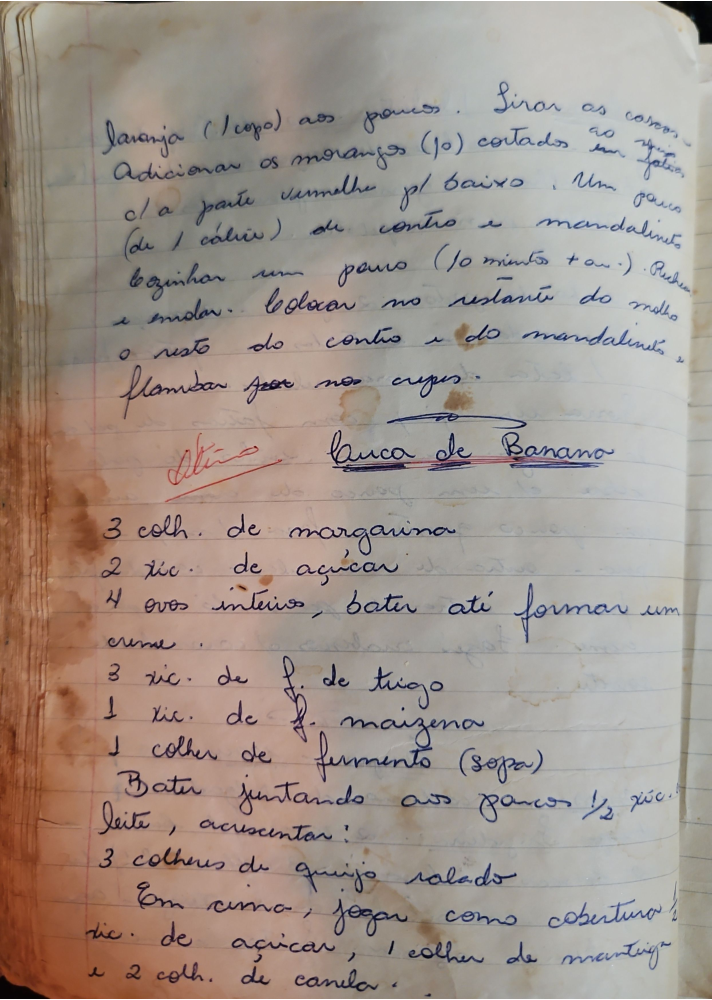 laranja (1 copo) aos poucos. Tirar as cascas.
Adicionar os morangos (10) cortados ao meio
em fatias
c/ a parte vermelha p/ baixo. Um pouco
(de 1 cálice) de contro e mandalineto
Cozinhar um pouco (10 mientos + ou -). Rechear
e enrolar. Colocar no restante do molho
o resto do contro e do mandalineto e
flambar nos crepes.
Ótimo Cuca de Banana
3 colh. de margarina
2 xic. de açúcar
4 ovos inteiros, bater até formar um
creme.
3 xic. de f. de trigo
1 xic. de f. maizena
1 colher de fermento (sopa)
Bater juntando aos poucos 1/2 xíc.
leite, acrescentar:
3 colheres de queijo ralado
Em cima, jogar como cobertura 1/2
xic. de açúcar, 1 colher de manteiga
e 2 colh. de canela.